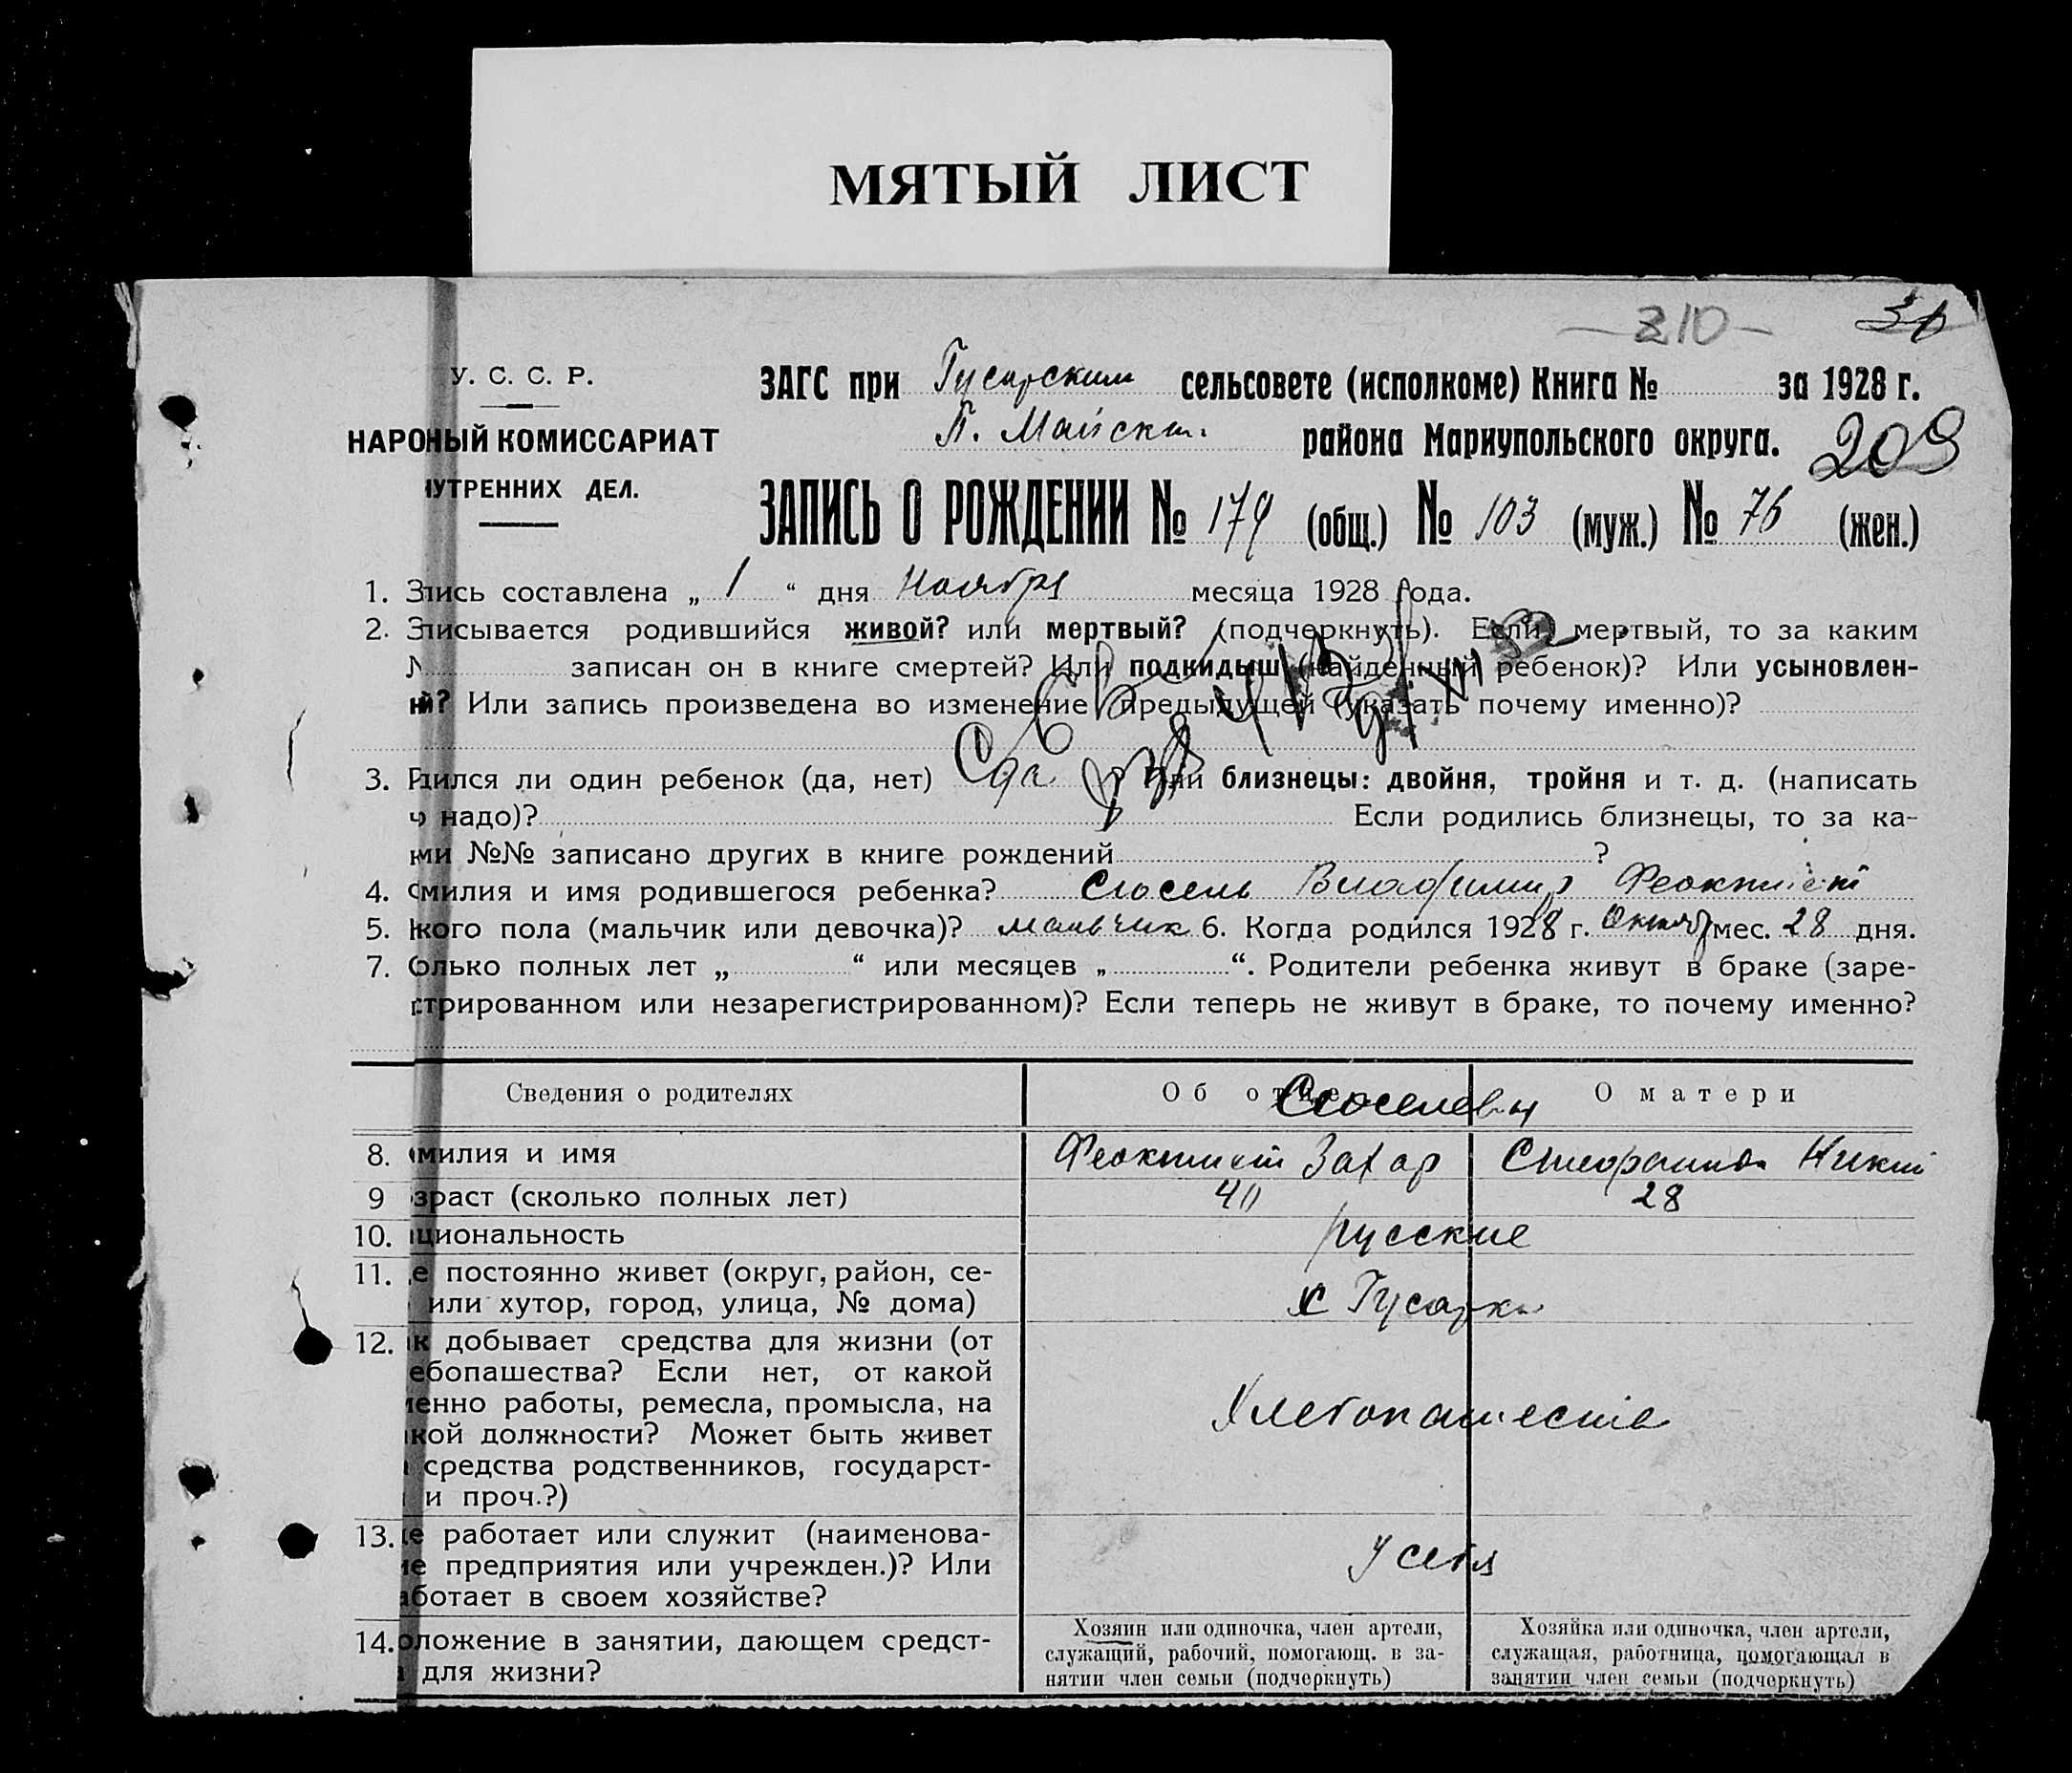 МЯТЫЙ ЛИСТ
210
У. С. С. Р.
НАРО НЫЙ КОМИССАРИАТ
УТРЕННИХ ДЕЛ.
ЗАГС при Гусарским сельсовете (исполкоме) Книга № за 1928 г.
П. Майскм. района Мариупольского округа.
209
ЗАПИСЬ О РОЖДЕНИИ № 179 (общ.) № 103 (муж.) № 76 (жен.)
1. З пись составлена „ 1 “ дня Ноября месяца 1928 года.
2. З писывается родившийся живой? или мертвый? (подчеркнуть). Если мертвый, то за каким
№ записан он в книге смертей? Или подкидыш (найденный ребенок)? Или усыновлен-
ный? Или запись произведена во изменение предыдущей (указать почему именно)?
3. Р дился ли один ребенок (да, нет) да ? Или близнецы: двойня, тройня и т. д. (написать
ч надо)? Если родились близнецы, то за ка-
ки ми №№ записано других в книге рождений ?
4. Ф милия и имя родившегося ребенка? Сюсель Владимир Феоктист
5. К кого пола (мальчик или девочка)? мальчик 6. Когда родился 1928 г. Октяб мес. 28 дня.
7. С олько полных лет „ “ или месяцев „ “. Родители ребенка живут в браке (заре-
г стрированном или незарегистрированном)? Если теперь не живут в браке, то почему именно?
Сведения о родителях Об отце О матери
Сюселевы
8. милия и имя Феоктист Захар Стефанида Никит
9 зраст (сколько полных лет) 40 28
10. циональность русские
11. е постоянно живет (округ, район, се-
или хутор, город, улица, № дома) с Гусарка
12. к добывает средства для жизни (от
ебопашества? Если нет, от какой
менно работы, ремесла, промысла, на
кой должности? Может быть живет
средства родственников, государст-
и проч.?)
Хлебопашеств
13. е работает или служит (наименова-
ие предприятия или учрежден.)? Или
аботает в своем хозяйстве?
У себя
14. оложение в занятии, дающем средст-
для жизни?
Хозяин или одиночка, член артели,
служащий, рабочий, помогающ. в за-
нятии член семьи (подчеркнуть)
Хозяйка или одиночка, член артели,
служащая, работница, помогающая в
занятии член семьи (подчеркнуть)